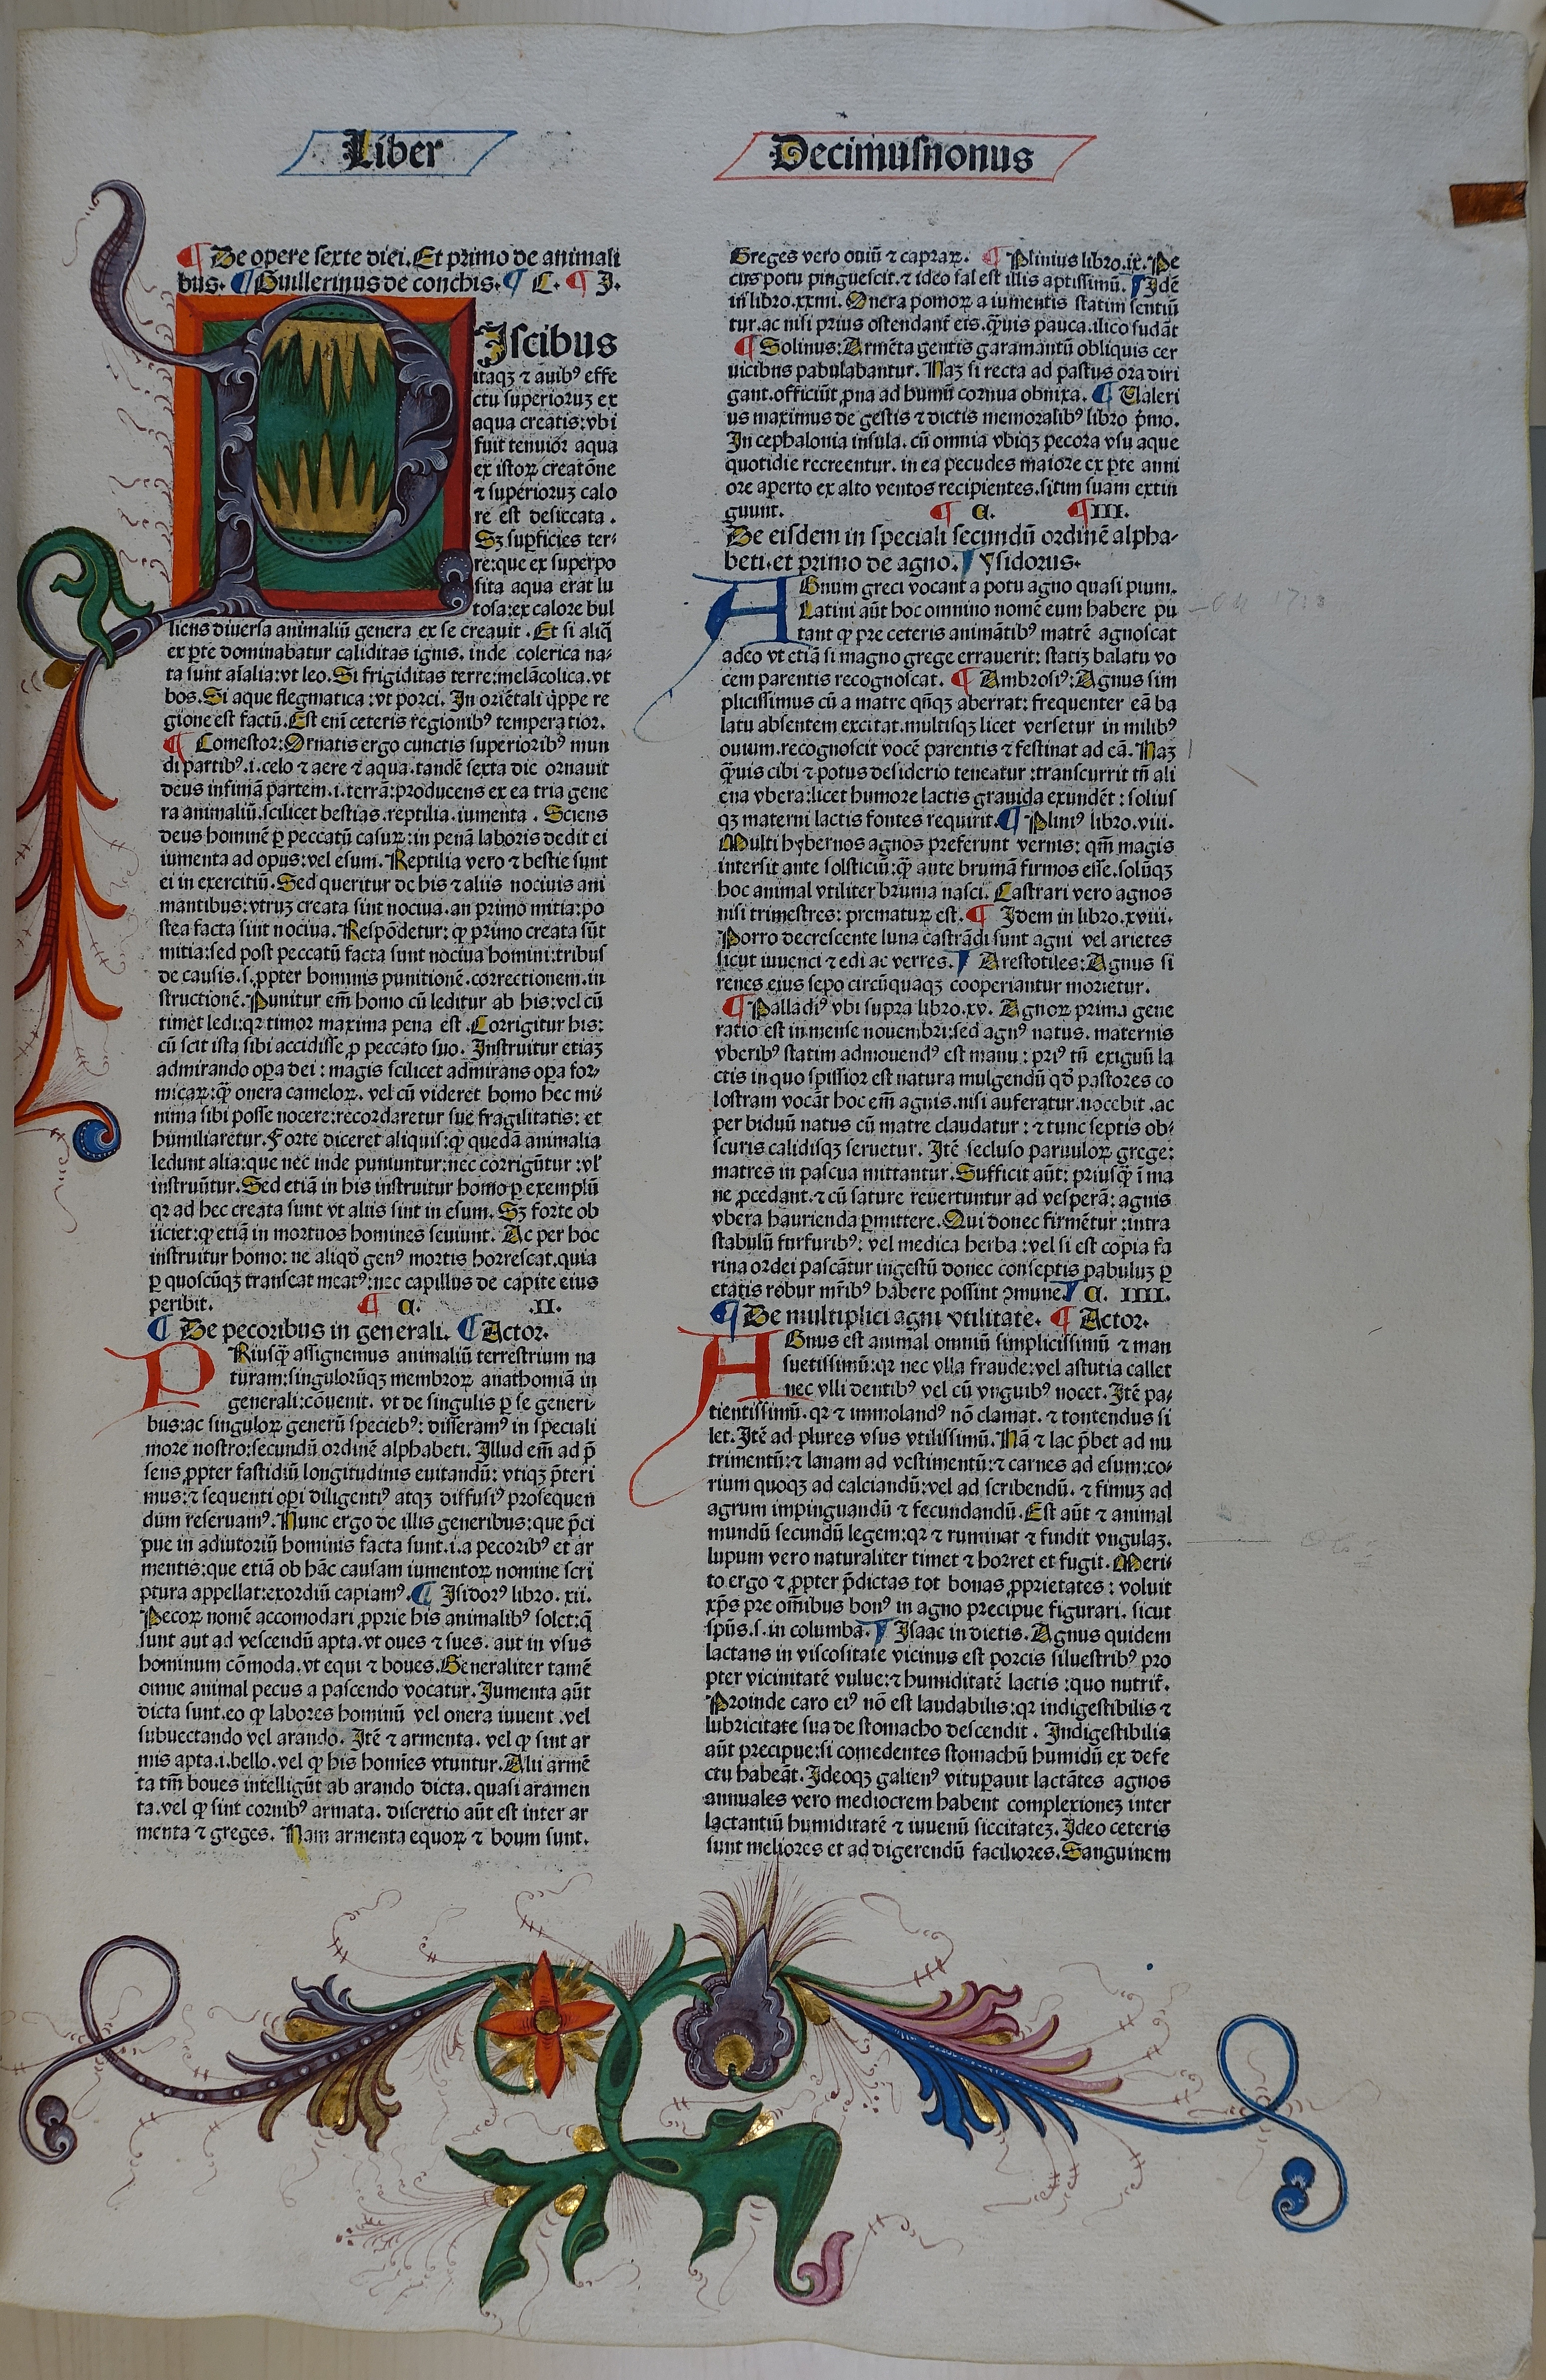 Liber
Decimusnonus
¶ De opere sexte diei. Et primo de animali
bus. ¶ Guillermus de conchis. ¶ C. ¶ I.
PIscibus
itaqꝫ ⁊ auibꝰ effe
ctu superioruꝫ ex
aqua creatis: vbi
fuit tenuior aqua
ex istoꝝ creatōne
⁊ superioruꝫ calo
re est desiccata.
Sꝫ supficies ter⸗
re: que ex superpo
sita aqua erat lu
tosa: ex calore bul
liens diuersa animaliū genera ex se creauit. Et si aliq̄
ex ꝑte dominabatur caliditas ignis, inde colerica na⸗
ta sunt aīalia: vt leo. Si frigiditas terre: melācolica, vt
bos. Si aque flegmatica: vt porci. In oriētali q̇ppe re
gione est factū. Est enī ceteris regionibꝰ temperatior.
¶ Comestor: Ornatis ergo cunctis superioribꝰ mun
di partibꝰ .i. celo ⁊ aere ⁊ aqua. tandē sexta die ornauit
deus infimā partem .i. terrā: producens ex ea tria gene
ra animaliū. scilicet bestias. reptilia. iumenta. Sciens
deus hominē ꝑ peccatū casuꝝ: in penā laboris dedit ei
iumenta ad opus: vel esum. Reptilia vero ⁊ bestie sunt
ei in exercitiū. Sed queritur de his ⁊ aliis nociuis ani
mantibus: vtruꝫ creata sint nociua. an primo mitia: po
stea facta sint nociua. Respōdetur: ꝙ primo creata sūt
mitia: sed post peccatū facta sunt nociua homini: tribus
de causis. s. ꝓpter hominis punitionē. correctionem. in
structionē. Punitur em̄ homo cū leditur ab his: vel cū
timet ledi: qꝛ timor maxima pena est. Corrigitur his:
cū scit ista sibi accidisse ꝑ peccato suo. Instruitur etiaꝫ
admirando oꝑa dei: magis scilicet admirans oꝑa for⸗
micaꝝ: ꝙ̄ onera cameloꝝ. vel cū videret homo hec mi⸗
nima sibi posse nocere: recordaretur sue fragilitatis: et
humiliaretur. Forte diceret aliquis: ꝙ quedā animalia
ledunt alia: que nec inde puniuntur: nec corrigūtur: vl̓
instruūtur. Sed etiā in his instruitur homo ꝑ exemplū
qꝛ ad hec creata sunt vt aliis sint in esum. Sꝫ forte ob
iiciet: ꝙ etiā in mortuos homines seuiunt. Ac per hoc
instruitur homo: ne aliqḋ genꝰ mortis horrescat. quia
ꝑ quoscūqꝫ transeat meatꝰ: nec capillus de capite eius
peribit. ¶ C. .II.
¶ De pecoribus in generali. ¶ Actor.
PRiusq̄ assignemus animaliū terrestrium na
turam: singulorūqꝫ membroꝝ anathomiā in
generali: cōuenit. vt de singulis ꝑ se generi⸗
bus: ac singuloꝝ generū speciebꝰ: disseramꝰ in speciali
more nostro: secundū ordinē alphabeti. Illud em̄ ad p̄
sens ꝓpter fastidiū longitudinis euitandū: vtiqꝫ p̄teri
mus: ⁊ sequenti oꝑi diligentiꝰ atqꝫ diffusiꝰ prosequen
dum reseruamꝰ. Nunc ergo de illis generibus: que p̄ci
pue in adiutoriū hominis facta sunt .i. a pecoribꝰ et ar
mentis: que etiā ob hāc causam iumentoꝝ nomine scri
ptura appellat: exordiū capiamꝰ. ¶ Isidorꝰ libro. xii.
Pecoꝝ nomē accomodari ꝓprie his animalibꝰ solet: q̄
sunt aut ad vescendū apta. vt oues ⁊ sues. aut in vsus
hominum cōmoda. vt equi ⁊ boues. Generaliter tamē
omne animal pecus a pascendo vocatur. Iumenta aūt
dicta sunt. eo ꝙ labores hominū vel onera iuuent. vel
subuectando vel arando. Itē ⁊ armenta. vel ꝙ sint ar
mis apta .i. bello. vel ꝙ his homīes vtuntur. Alii armē
ta tm̄ boues intelligūt ab arando dicta. quasi aramen
ta. vel ꝙ sint cornibꝰ armata. discretio aūt est inter ar
menta ⁊ greges. Nam armenta equoꝝ ⁊ boum sunt.
Greges vero ouiū ⁊ capraꝝ. ¶ Plinius libro. ix. Pe
cus potu pinguescit. ⁊ ideo sal est illis aptissimū. ¶ Idē
in libro. xxiiii. Onera pomoꝝ a iumentis statim sentiū
tur. ac nisi prius ostendant̄ eis. q̄uis pauca. ilico sudāt
¶ Solinus: Armēta gentis garamantū obliquis cer
uicibus pabulabantur. Naꝫ si recta ad pastus ora diri
gant. officiūt ꝓna ad humū cornua obnixa. ¶ Valeri
us maximus de gestis ⁊ dictis memoralibꝰ libro p̄mo.
In cephalonia insula. cū omnia vbiqꝫ pecora vsu aque
quotidie recreentur. in ea pecudes maiore ex ꝑte anni
ore aperto ex alto ventos recipientes. sitim suam extin
guunt. ¶ C. ¶ III.
De eisdem in speciali secundū ordinē alpha⸗
beti. et primo de agno. ¶ ysidorus.
AGnum greci vocant a potu agno quasi pium.
Latini aūt hoc omnino nomē eum habere pu
tant ꝙ pre ceteris animātibꝰ matrē agnoscat
adeo vt etiā si magno grege errauerit: statiꝫ balatu vo
cem parentis recognoscat. ¶ Ambrosiꝰ: Agnus sim
plicissimus cū a matre qn̄qꝫ aberrat: frequenter eā ba
latu absentem excitat. multisqꝫ licet versetur in milibꝰ
ouium. recognoscit vocē parentis ⁊ festinat ad eā. Naꝫ
q̄uis cibi ⁊ potus desiderio teneatur: transcurrit tn̄ ali
ena vbera: licet humore lactis grauida exundēt: solius
qꝫ materni lactis fontes requirit. ¶ Pliniꝰ libro. viii.
Multi hybernos agnos preferunt vernis: qm̄ magis
intersit ante solsticiū: ꝙ̄ ante brumā firmos esse. solūqꝫ
hoc animal vtiliter bruma nasci. Castrari vero agnos
nisi trimestres: prematuꝝ est. ¶ Idem in libro. xviii.
Porro decrescente luna castrādi sunt agni vel arietes
sicut iuuenci ⁊ edi ac verres. ¶ Arestotiles: Agnus si
renes eius sepo circūquaqꝫ cooperiantur morietur.
¶ Palladiꝰ vbi supra libro. xv. Agnoꝝ prima gene
ratio est in mense nouembri: sed agnꝰ natus. maternis
vberibꝰ statim admouendꝰ est manu: priꝰ tn̄ exiguū la
ctis in quo spissior est natura mulgendū qḋ pastores co
lostram vocāt hoc em̄ agnis. nisi auferatur. nocebit. ac
per biduū natus cū matre claudatur: ⁊ tunc septis ob⸗
scuris calidisqꝫ seruetur. Itē secluso paruuloꝝ grege:
matres in pascua mittantur. Sufficit aūt: priusq̄ ī ma
ne ꝓcedant. ⁊ cū sature reuertuntur ad vesperā: agnis
vbera haurienda ꝑmittere. Qui donec firmētur: intra
stabulū furfuribꝰ: vel medica herba: vel si est copia fa
rina ordei pascātur ingestū donec conseptis pabuluꝫ ꝑ
etatis robur mr̄ibꝰ habere possint ꝯmune. ¶ C. IIII.
¶ De multiplici agni vtilitate. ¶ Actor.
AGnus est animal omniū simplicissimū ⁊ man
suetissimū: qꝛ nec vlla fraude: vel astutia callet
nec vlli dentibꝰ vel cū vnguibꝰ nocet. Itē pa⸗
tientissimū. qꝛ ⁊ immolandꝰ nō clamat. ⁊ tondendus si
let. Itē ad plures vsus vtilissimū. Nā ⁊ lac p̄bet ad nu
trimentū: ⁊ lanam ad vestimentū: ⁊ carnes ad esum: co⸗
rium quoqꝫ ad calciandū: vel ad scribendū. ⁊ fimuꝫ ad
agrum impinguandū ⁊ fecundandū. Est aūt ⁊ animal
mundū secundū legem: qꝛ ⁊ ruminat ⁊ findit vngulaꝫ.
lupum vero naturaliter timet ⁊ horret et fugit. Meri⸗
to ergo ⁊ ꝓpter p̄dictas tot bonas ꝓprietates: voluit
xp̄s pre om̄ibus bonꝰ in agno precipue figurari. sicut
spūs. s. in columba. ¶ Isaac in dietis. Agnus quidem
lactans in viscositate vicinus est porcis siluestribꝰ pro
pter vicinitatē vulue: ⁊ humiditatē lactis: quo nutrit̄.
Proinde caro eiꝰ nō est laudabilis: qꝛ indigestibilis ⁊
lubricitate sua de stomacho descendit. Indigestibilis
aūt precipue: si comedentes stomachū humidū ex defe
ctu habeāt. Ideoqꝫ galienꝰ vituꝑauit lactātes agnos
annuales vero mediocrem habent complexioneꝫ inter
lactantiū humiditatē ⁊ iuuenū siccitateꝫ. Ideo ceteris
sunt meliores et ad digerendū faciliores. Sanguinem